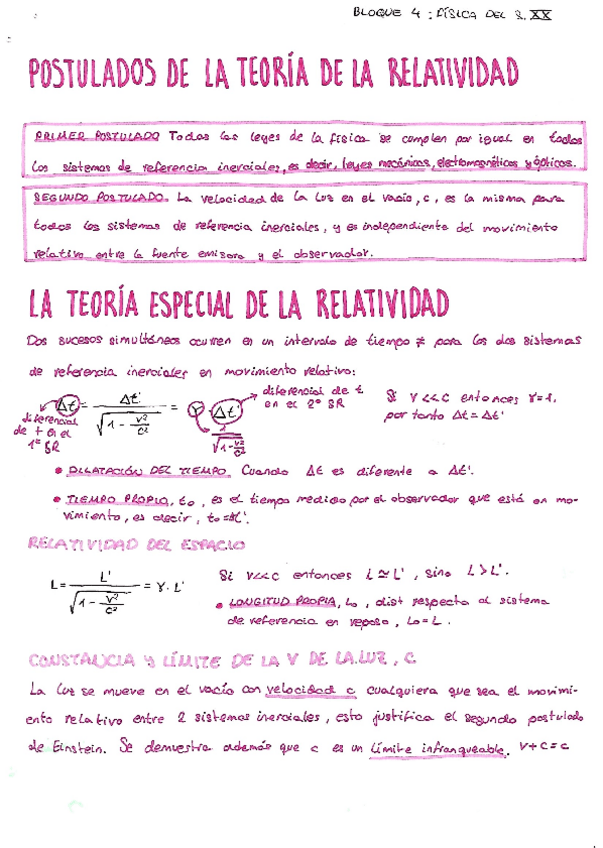 BLOQUE 4 : FÍSICA DEL S. XX
POSTULADOS DE LA TEORÍA DE LA RELATIVIDAD
PRIMER POSTULADO Todas las leyes de la física se cumplen por igual en todos
los sistemas de referencia inerciales, es decir, leyes mecánicas, electromagnéticas y ópticas.
SEGUNDO POSTULADO. La velocidad de la luz en el vacío, c, es la misma para
todos los sistemas de referencia inerciales, y es independiente del movimiento
relativo entre la fuente emisora y el observador.
LA TEORÍA ESPECIAL DE LA RELATIVIDAD
Dos sucesos simultáneos ocurren en un intervalo de tiempo ≠ para los dos sistemas
de referencia inerciales en movimiento relativo:
Δt = Δt' / √(1 - v²/c²) = γ · Δt'
diferencial de t en el 1er SR
diferencial de t en el 2º SR
1 / √(1 - v²/c²)
Si v<<c entonces γ=1,
por tanto Δt = Δt'
• DILATACIÓN DEL TIEMPO. Cuando Δt es diferente a Δt'.
• TIEMPO PROPIO, to, es el tiempo medido por el observador que está en mo-
vimiento, es decir, to = Δt'.
RELATIVIDAD DEL ESPACIO
L = L' / √(1 - v²/c²) = γ · L'
Si v<<c entonces L ≃ L', sino L > L'.
• LONGITUD PROPIA, Lo, dist respecto al sistema
de referencia en reposo, Lo = L.
CONSTANCIA Y LÍMITE DE LA V DE LA LUZ, C
La luz se mueve en el vacío con velocidad c cualquiera que sea el movimi-
ento relativo entre 2 sistemas inerciales, esto justifica el segundo postulado
de Einstein. Se demuestra además que c es un límite infranqueable. v + c = c